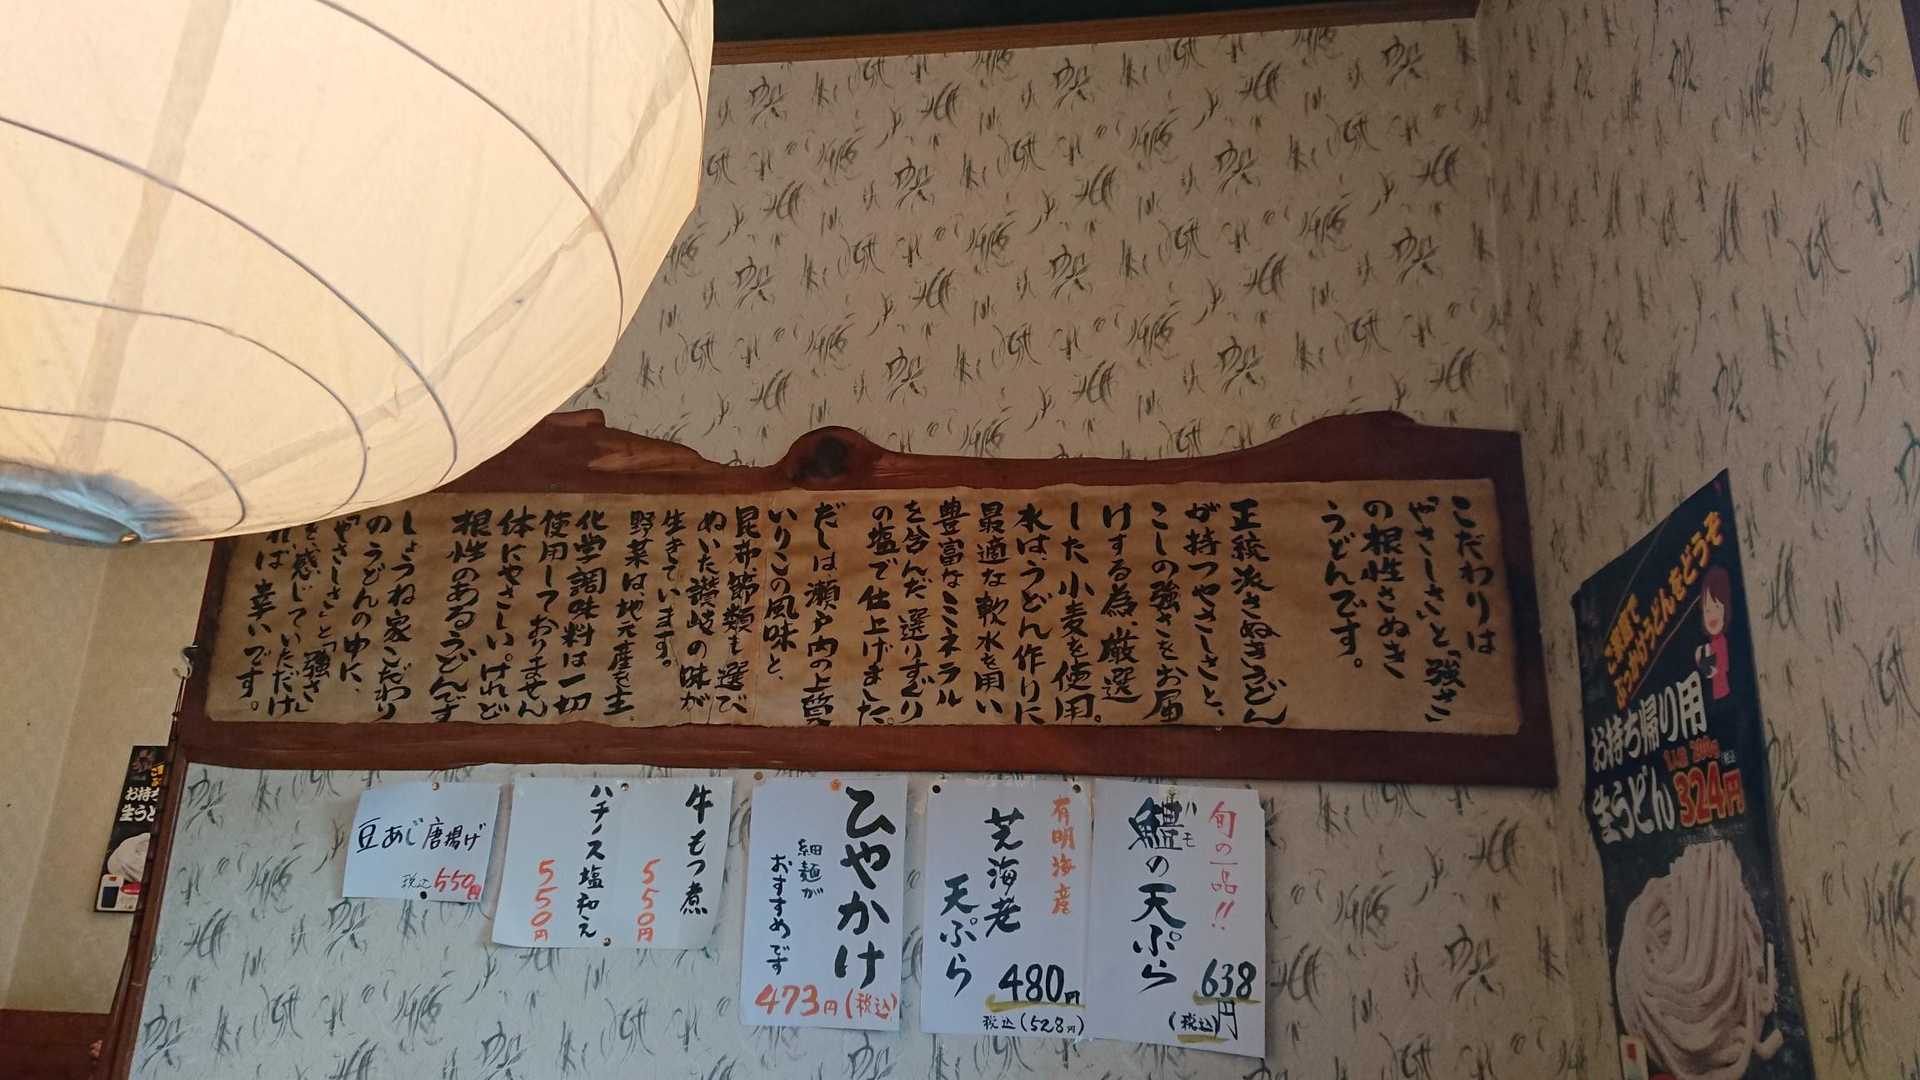 こだわりは
「やさしさ」と「強さ」
の根性さぬき
うどんです。
王統派さぬきうどん
が持つやさしさと、
こしの強さをお届
けする為、厳選
した小麦を使用。
水は、うどん作りに
最適な軟水を用い
豊富なミネラル
を含んだ選りすぐり
の塩で仕上げました。
だしは瀬戸内の上質
いりこの風味と、
昆布、節類も選び
ぬいた讃岐の味が
生きています。
野菜は地元産を主、
化学調味料は一切
使用しておりません
体にやさしい。けれど
根性のあるうどんです
しょうね家こだわり
のうどんの中に、
「やさしさ」と「強さ」
を感じていただけ
れば幸いです。
旬の一品!!
ハモ
鱧の天ぷら
638円
(税込)
有明海産
芝海老
天ぷら
480円
税込(528円)
ひやかけ
細麺が
おすすめです
473円(税込)
牛もつ煮
550円
ハチノス塩和え
550円
豆あじ唐揚げ
税込550円
ご家庭で
ぶっかけうどんをどうぞ
お持ち帰り用
生うどん
324円
お持ち
生うど